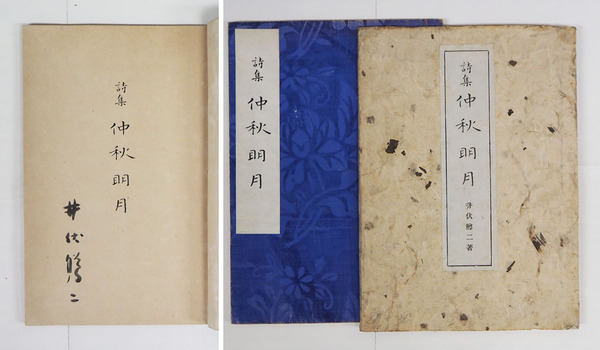 詩集 仲秋明月
井伏鱒二
詩集 仲秋明月
詩集 仲秋明月 井伏鱒二著